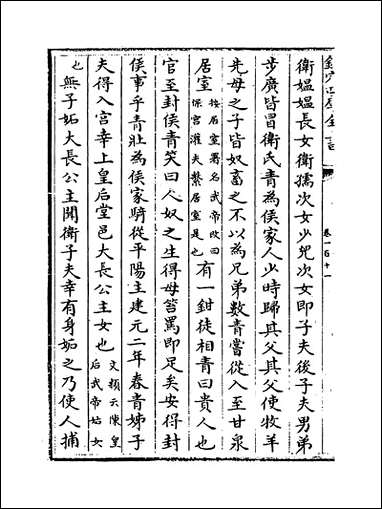 欽定四庫全書
卷一百十一
衛媼媼長女衛孺次女少兒次女即子夫後子夫男弟
步廣皆冒衛氏青為侯家人少時歸其父其父使牧羊
先母之子皆奴畜之不以為兄弟數青嘗從入至甘泉
居室按居室署名武帝改曰保宮灌夫繫居室是也有一鉗徒相青曰貴人也
官至封侯青笑曰人奴之生得毋笞罵即足矣安得封
侯事乎青壯為侯家騎從平陽主建元二年春青姊子
夫得入宮幸上皇后堂邑大長公主女也文穎云陳皇后武帝姑女
也無子妬大長公主聞衛子夫幸有身妬之乃使人捕